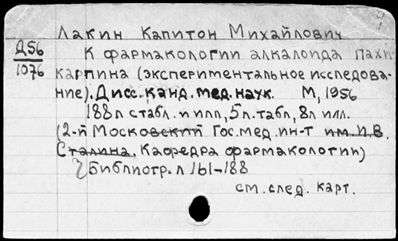 Лакин Капитон Михайлович
Д56
1076
К фармакологии алкалоида пахи-
карпина (экспериментальное исследова-
ние). Дисс. канд. мед. наук. М, 1956
188л с табл. и илл, 5л. табл, 8л илл.
(2-й Московский Гос. мед. ин-т им. И.В.
Сталина. Кафедра фармакологии)
Библиогр. л 161-188
см. след. карт.